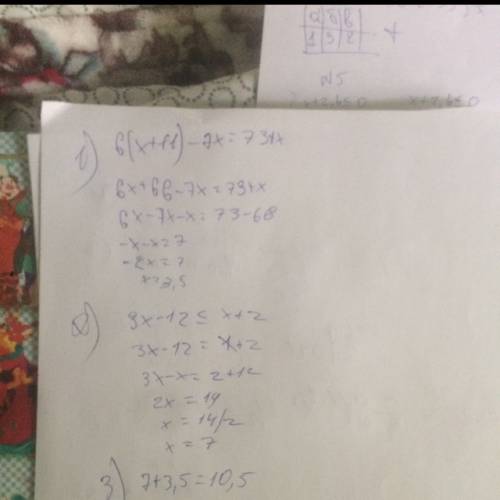 а б в
1 3 2
N5
x+7,6≤0
1) 6(x+11)-7x=73+x
6x+66-7x=73+x
6x-7x-x=73-66
-x-x=7
-2x=7
x=3,5
2) 3x-12≤x+2
3x-12=x+2
3x-x=2+12
2x=14
x=14/2
x=7
3) 7+3,5=10,5